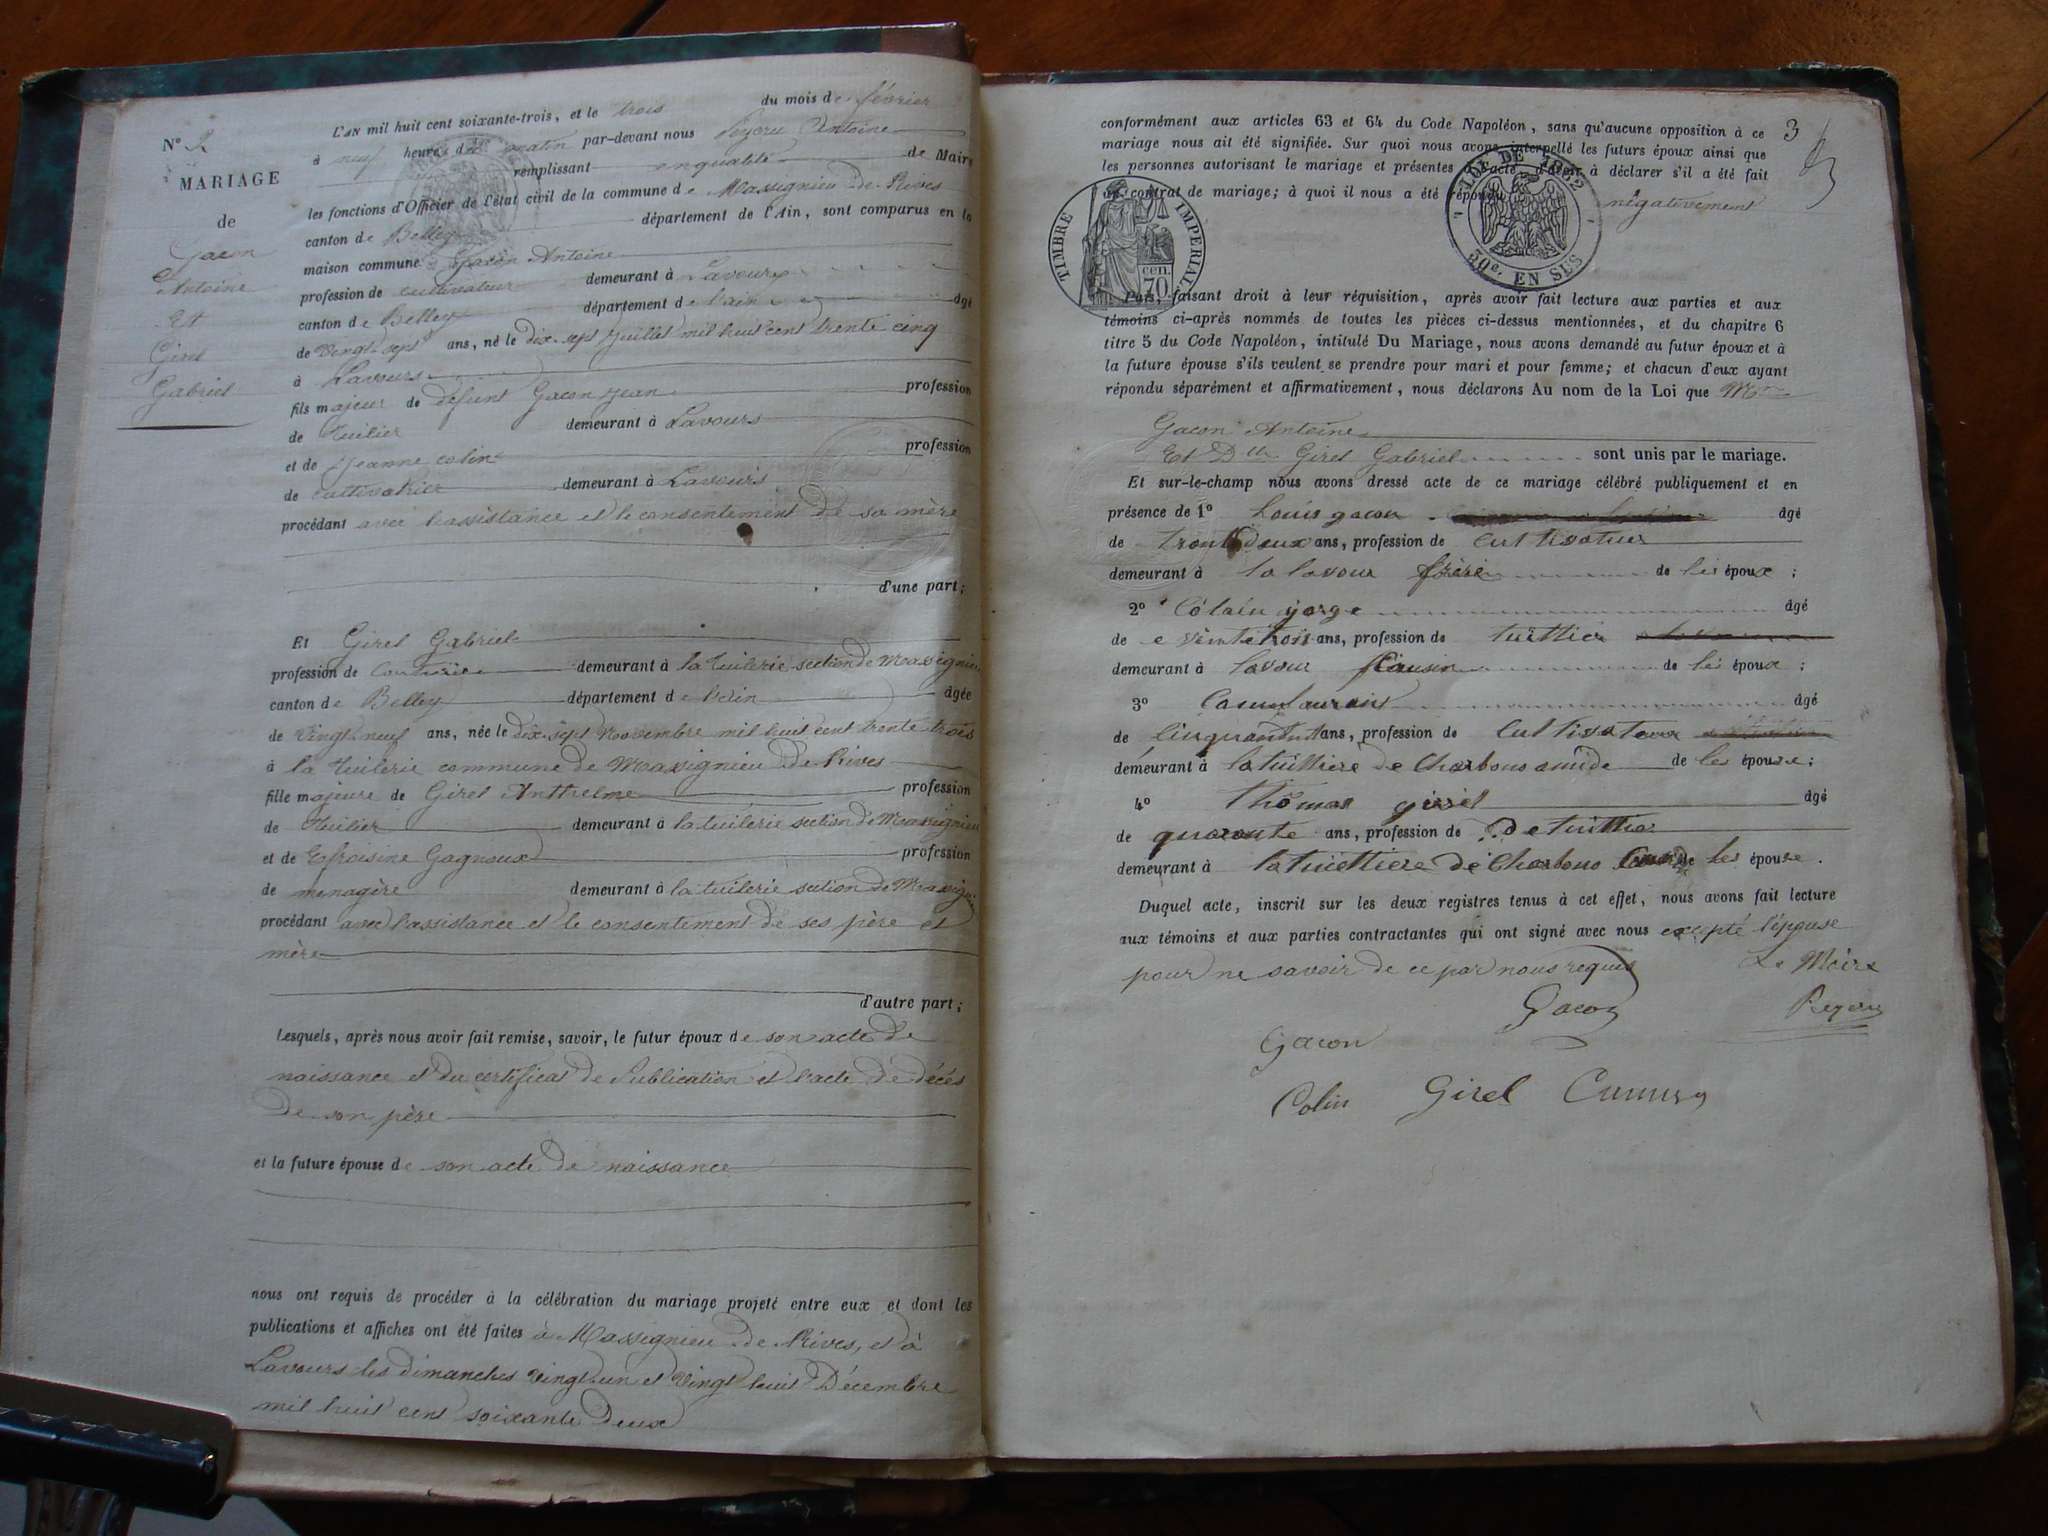 N° 2
MARIAGE
de
Gacon
Antoine
Et
Girel
Gabriel
L'AN mil huit cent soixante-trois, et le trois du mois de février
à neuf heures du matin par-devant nous Peyeru Antoine
remplissant en qualité de Maire
les fonctions d'Officier de l'état civil de la commune de Massignieu de Rives
canton de Belley département de l'Ain, sont comparus en la
maison commune Gacon Antoine
profession de cultivateur demeurant à Lavours
canton de Belley département de l'ain âgé
de Vingt-sept ans, né le dix-sept Juillet mil huit cent trente cinq
à Lavours
fils majeur de défunt Gacon Jean profession
de Tuilier demeurant à Lavours
et de Jeanne colin profession
de cultivatrice demeurant à Lavours
procédant avec l'assistance et le consentement de sa mère
d'une part;
Et Girel Gabriel
profession de demeurant à la Tuilerie section de Massignieu
canton de Belley département de l'Ain âgée
de Vingt-neuf ans, née le dix-sept Novembre mil huit cent trente trois
à la tuilerie commune de Massignieu de Rives
fille majeure de Girel Anthelme profession
de Tuilier demeurant à la tuilerie section de Massignieu
et de Efroisine Gagnoux profession
de menagère demeurant à la tuilerie section de Massignieu
procédant avec l'assistance et le consentement de ses père et
mère
d'autre part;
Lesquels, après nous avoir fait remise, savoir, le futur époux de son acte de
naissance et du certificat de Publication et l'acte de décès
de son père
et la future épouse de son acte de naissance
nous ont requis de procéder à la célébration du mariage projeté entre eux et dont les
publications et affiches ont été faites à Massignieu de Rives, et à
Lavours les dimanches vingt-un et Vingt huit Décembre
mil huit cent soixante deux
3
conformément aux articles 63 et 64 du Code Napoléon, sans qu'aucune opposition à ce
mariage nous ait été signifiée. Sur quoi nous avons interpellé les futurs époux ainsi que
les personnes autorisant le mariage et présentes à l'acte d'avoir à déclarer s'il a été fait
un contrat de mariage; à quoi il nous a été répondu négativement
TIMBRE IMPERIAL
70 cen.
LOI DE 1862
50e. EN SUS
Puis, faisant droit à leur réquisition, après avoir fait lecture aux parties et aux
témoins ci-après nommés de toutes les pièces ci-dessus mentionnées, et du chapitre 6
titre 5 du Code Napoléon, intitulé Du Mariage, nous avons demandé au futur époux et à
la future épouse s'ils veulent se prendre pour mari et pour femme; et chacun d'eux ayant
répondu séparément et affirmativement, nous déclarons Au nom de la Loi que
Gacon Antoine
Et Dlle Girel Gabriel sont unis par le mariage.
Et sur-le-champ nous avons dressé acte de ce mariage célébré publiquement et en
présence de 1° Louis gacon âgé
de trente deux ans, profession de cultivateur
demeurant à la lavour frère de les époux ;
2° Colain jorge âgé
de vintetrois ans, profession de tuillier
demeurant à lavour Cousin de les époux ;
3° âgé
de ans, profession de Cultivateur
demeurant à la tuilliere de Charbono amide de les épouse ;
4° Thômas girel âgé
de quarante ans, profession de de tuillie
demeurant à la tuilliere de Charbono de les épouse .
Duquel acte, inscrit sur les deux registres tenus à cet effet, nous avons fait lecture
aux témoins et aux parties contractantes qui ont signé avec nous excepté l'épouse
pour ne savoir de ce par nous requis Le Maire
Gacon Peyeru
Gacon
Colin Girel